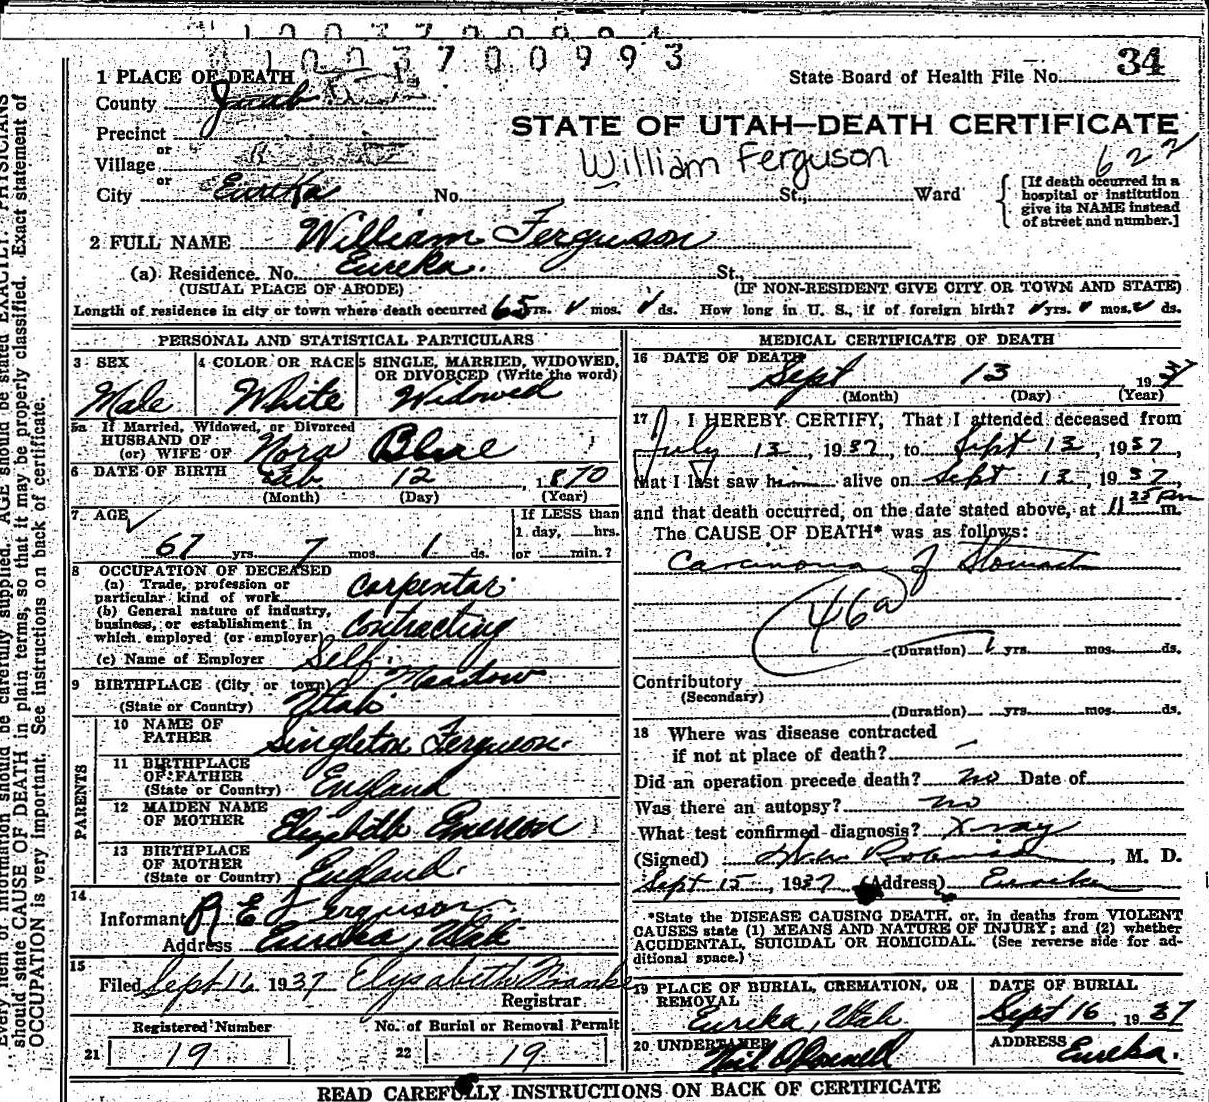 1003700993
State Board of Health File No. 34
1 PLACE OF DEATH
County Juab
STATE OF UTAH—DEATH CERTIFICATE
Precinct
or
Village
William Ferguson 622
or
City Eureka No. St., Ward
[If death occurred in a hospital or institution give its NAME instead of street and number.]
2 FULL NAME William Ferguson
(a) Residence. No. Eureka. St.,
(USUAL PLACE OF ABODE) (IF NON-RESIDENT GIVE CITY OR TOWN AND STATE)
Length of residence in city or town where death occurred 65 yrs. mos. ds. How long in U. S., if of foreign birth? yrs. mos. ds.
PERSONAL AND STATISTICAL PARTICULARS
3 SEX
Male
4 COLOR OR RACE
White
5 SINGLE, MARRIED, WIDOWED, OR DIVORCED (Write the word)
Widowed
5a If Married, Widowed, or Divorced
HUSBAND OF
(or) WIFE OF Nora
6 DATE OF BIRTH Feb. 12, 1870
(Month) (Day) (Year)
7 AGE
67 yrs. 7 mos. 1 ds.
If LESS than
1 day, hrs.
or min.?
8 OCCUPATION OF DECEASED
(a) Trade, profession or
particular kind of work Carpenter.
(b) General nature of industry,
business, or establishment in
which employed (or employer) Contracting
(c) Name of Employer Self
9 BIRTHPLACE (City or town) Meadow
(State or Country) Utah
PARENTS
10 NAME OF
FATHER Singleton Ferguson.
11 BIRTHPLACE
OF FATHER
(State or Country) England
12 MAIDEN NAME
OF MOTHER Elizabeth Emerson
13 BIRTHPLACE
OF MOTHER
(State or Country) England.
14
Informant R E Ferguson
Address Eureka, Utah
15
Filed Sept 16 1937 Elysabeth
Registrar
Registered Number
21 19
No. of Burial or Removal Permit
22 19
MEDICAL CERTIFICATE OF DEATH
16 DATE OF DEATH
Sept 13 1937
(Month) (Day) (Year)
17 I HEREBY CERTIFY, That I attended deceased from
July 13, 1937, to Sept 13, 1937,
that I last saw him alive on Sept 13, 1937,
and that death occurred, on the date stated above, at 11 Pm m.
The CAUSE OF DEATH* was as follows:
Carcinoma of Stomach
46a
(Duration) 1 yrs. mos. ds.
Contributory
(Secondary)
(Duration) yrs. mos. ds.
18 Where was disease contracted
if not at place of death? —
Did an operation precede death? no Date of
Was there an autopsy? no
What test confirmed diagnosis? X-ray
(Signed) , M. D.
Sept 15, 1937 (Address) Eureka
*State the DISEASE CAUSING DEATH, or, in deaths from VIOLENT
CAUSES state (1) MEANS AND NATURE OF INJURY; and (2) whether
ACCIDENTAL, SUICIDAL OR HOMICIDAL. (See reverse side for ad-
ditional space.)
19 PLACE OF BURIAL, CREMATION, OR
REMOVAL
Eureka, Utah
DATE OF BURIAL
Sept 16, 1937
20 UNDERTAKER
ADDRESS Eureka.
READ CAREFULLY INSTRUCTIONS ON BACK OF CERTIFICATE
should be carefully supplied. AGE should be stated EXACTLY. PHYSICIANS
should state CAUSE OF DEATH in plain terms, so that it may be properly classified. Exact statement of
OCCUPATION is very important. See instructions on back of certificate.